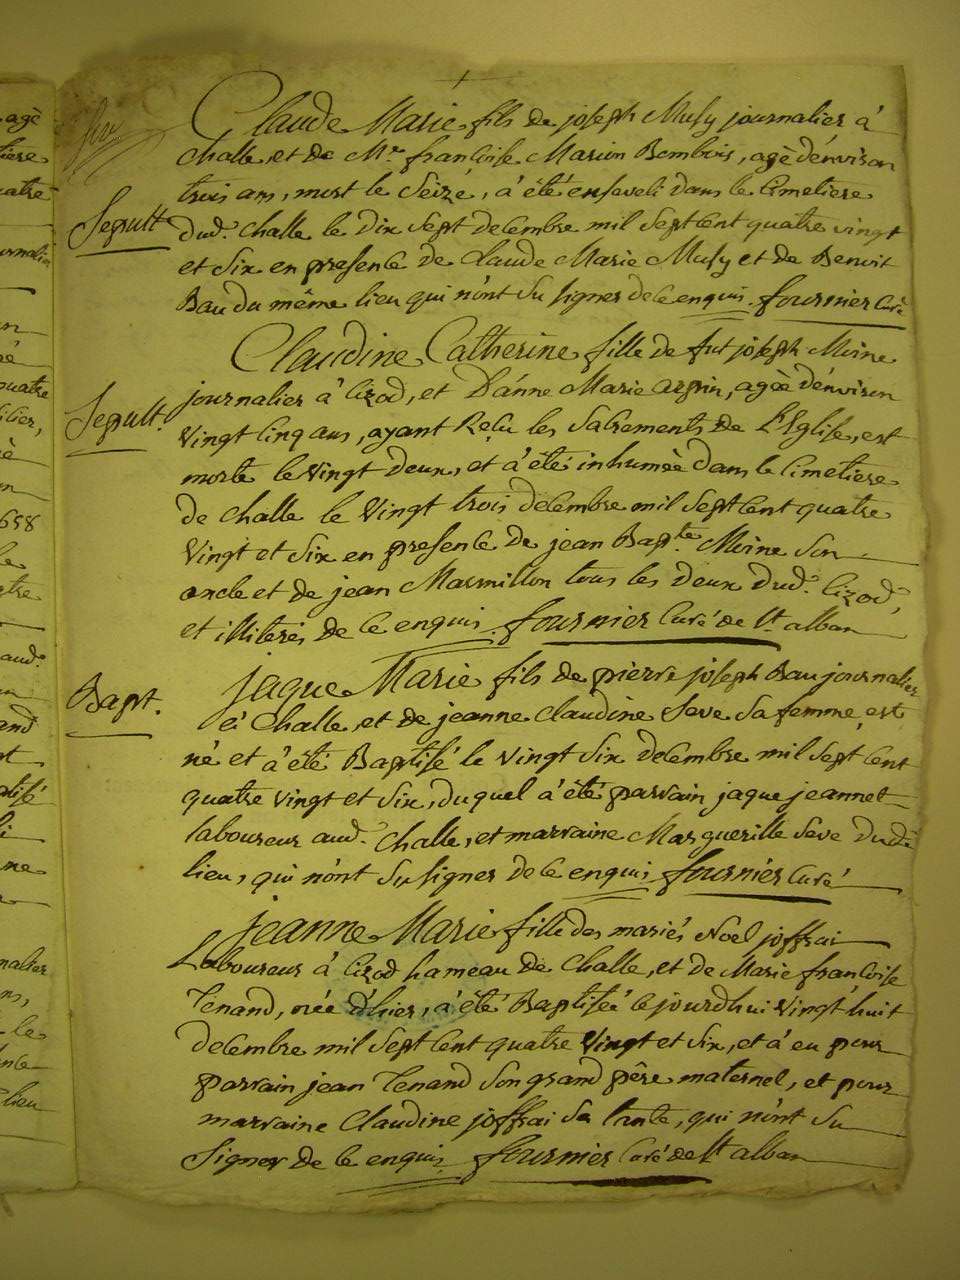 Claude Marie fils de joseph Musy journalier à
challe et de Mie francoise Marion Bombois, agè d'énviron
trois ans, mort le Seizé, a été enseveli dans le Cimetiere
Sepult.
dud. challe le dix Sept decembre mil Sept Cent quatre vingt
et Six en presence de Claude Marie Musy et de Benoit
Bau du même lieu qui n'ont Su signer de ce enquis. fournier Curé
Claudine Catherine fille de fut joseph Moine
journalier à Cizod, et D'anne Marie argnin, agèe d'énviron
Sepult.
Vingt Cinq ans, ayant Reçu les Sacrements de L'Eglise, est
morte le Vingt deux, et a été inhumèe dans le Cimetiere
de challe le Vingt trois decembre mil Sept Cent quatre
Vingt et Six en presence de jean Bapte. Moine Son
oncle et de jean Marmillon tous les deux dud. Cizod,
et illiterés de ce enquis. fournier Curé de St. alban
Bapt.
Jaque Marie fils de pierre joseph Bau journalier
à Challe, et de jeanne Claudine Seve Sa femme, est
né et a été Baptisé le vingt Six decembre mil Sept Cent
quatre vingt et Six, duquel a été parrain jaque jeannet
laboureur aud. Challe, et marraine Marguerille Seve dudt
lieu, qui n'ont Su signer de ce enquis fournier Curé
jeanne Marie fille des mariés Noel joffrai
Laboureur à Cizod hameau de Challe, et de Marie francoise
Tenand, née d'hier, a été Baptiseé ce jourdhui Vingt huit
decembre mil Sept Cent quatre Vingt et Six, et a eu pour
parrain jean Tenand Son grand pêre maternel, et pour
marraine Claudine joffrai Sa tante, qui n'ont Su
Signer de ce enquis fournier Curé de St. alban